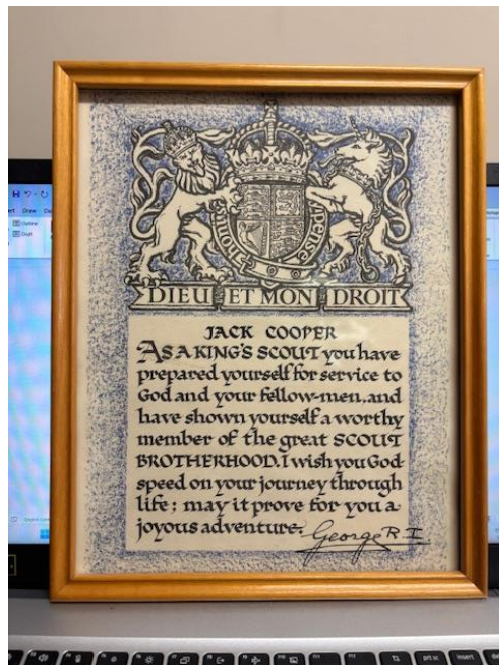 Honi soit
pense
DIEU ET MON DROIT
JACK COOPER
AS A KING'S SCOUT you have
prepared yourself for service to
God and your fellow-men, and
have shown yourself a worthy
member of the great SCOUT
BROTHERHOOD. I wish you God-
speed on your journey through
life; may it prove for you a
joyous adventure.
George R I
Draw
Outline
Draft
insert